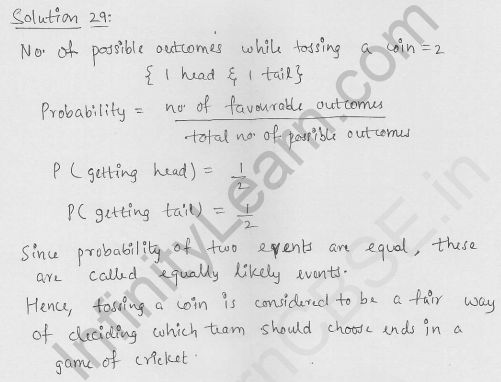 Solution 29:
No. of possible outcomes while tossing a coin = 2
{ 1 head & 1 tail}
Probability = no. of favourable outcomes
total no. of possible outcomes
P( getting head) = 1/2
P( getting tail) = 1/2
Since probability of two events are equal, these
are called equally likely events.
Hence, tossing a coin is considered to be a fair way
of deciding which team should choose ends in a
game of cricket.
InfinityLearn.com
LearnCBSE.in